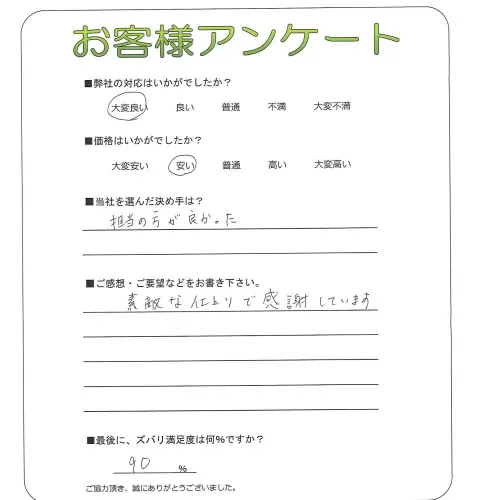 お客様アンケート
■弊社の対応はいかがでしたか？
大変良い 良い 普通 不満 大変不満
■価格はいかがでしたか？
大変安い 安い 普通 高い 大変高い
■当社を選んだ決め手は？
担当の方が良かった
■ご感想・ご要望などをお書き下さい。
素敵な仕上りで感謝しています
■最後に、ズバリ満足度は何%ですか？
90 %
ご協力頂き、誠にありがとうございました。